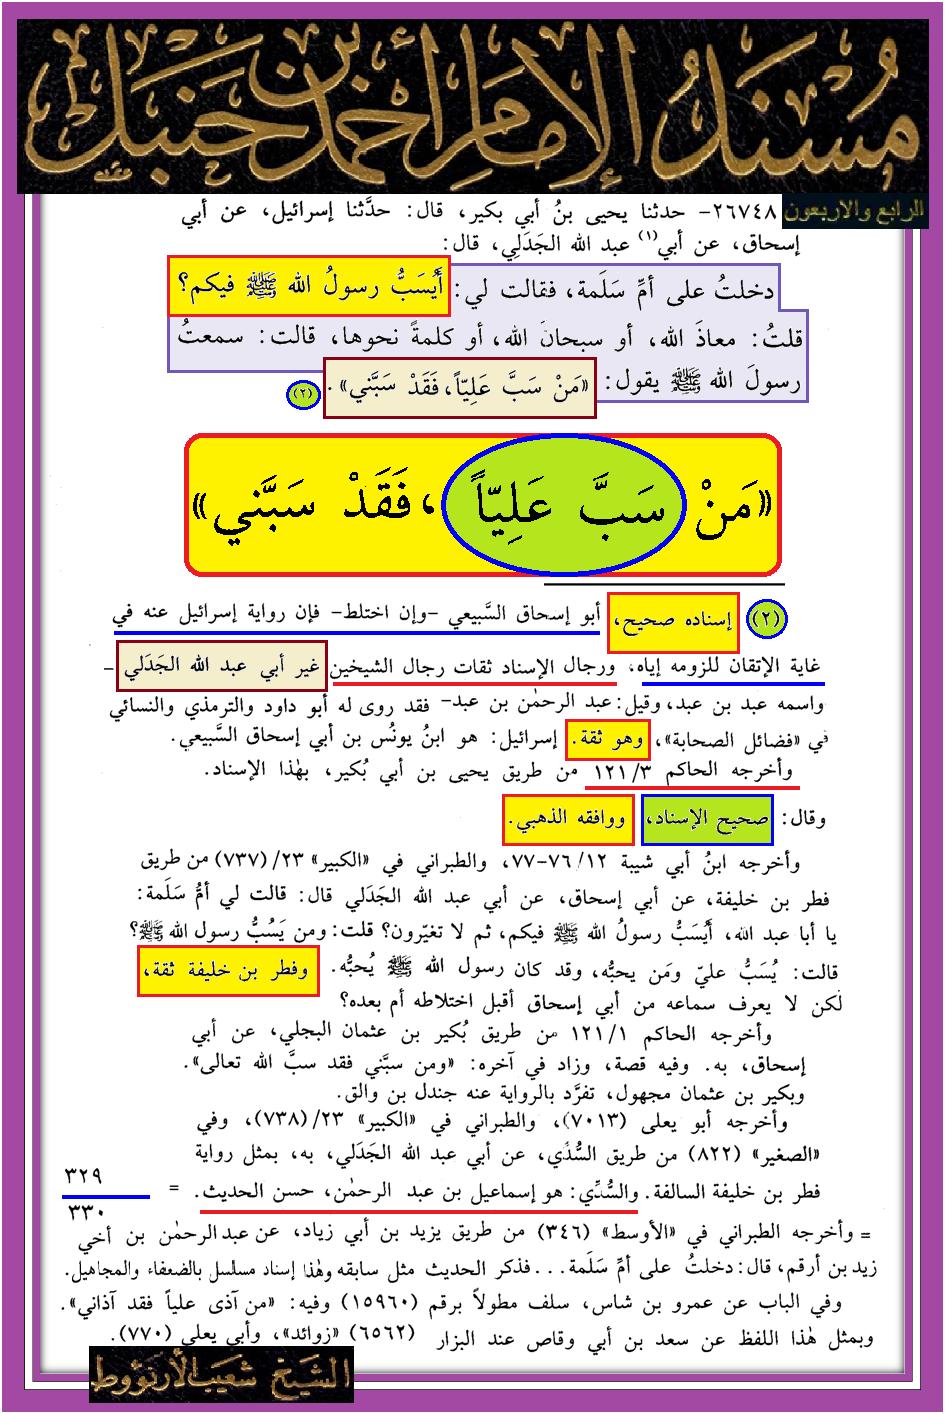 مسند الإمام أحمد بن حنبل
الرابع والاربعون
٢٦٧٤٨- حدثنا يحيى بنُ أبي بكير، قال: حدَّثنا إسرائيل، عن أبي
إسحاق، عن أبي(١) عبد الله الجَدَلِي، قال:
دخلتُ على أمِّ سَلَمة، فقالت لي: أَيُسَبُّ رسولُ الله ﷺ فيكم؟
قلتُ: معاذَ الله، أو سبحانَ الله، أو كلمةً نحوها، قالت: سمعتُ
رسولَ الله ﷺ يقول: «مَنْ سَبَّ عَلِيّاً، فَقَدْ سَبَّني». (٢)
«مَنْ سَبَّ عَلِيّاً، فَقَدْ سَبَّني»
(٢) إسناده صحيح، أبو إسحاق السَّبيعي -وإن اختلط- فإن رواية إسرائيل عنه في
غاية الإتقان للزومه إياه، ورجال الإسناد ثقات رجال الشيخين غير أبي عبد الله الجَدَلي -
واسمه عبد بن عبد، وقيل: عبد الرحمٰن بن عبد- فقد روى له أبو داود والترمذي والنسائي
في «فضائل الصحابة»، وهو ثقة. إسرائيل: هو ابنُ يونُس بن أبي إسحاق السَّبيعي.
وأخرجه الحاكم ١٢١/٣ من طريق يحيى بن أبي بُكير، بهٰذا الإسناد.
وقال: صحيح الإسناد، ووافقه الذهبي.
وأخرجه ابنُ أبي شيبة ٧٦/١٢-٧٧، والطبراني في «الكبير» ٢٣/(٧٣٧) من طريق
فطر بن خليفة، عن أبي إسحاق، عن أبي عبد الله الجَدَلي قال: قالت لي أمُّ سَلَمة:
يا أبا عبد الله، أَيُسَبُّ رسولُ الله ﷺ فيكم، ثم لا تغيّرون؟ قلت: ومن يَسُبُّ رسول الله ﷺ؟
قالت: يُسَبُّ عليّ ومَن يحبُّه، وقد كان رسول الله ﷺ يُحبُّه. وفطر بن خليفة ثقة،
لكن لا يعرف سماعه من أبي إسحاق أقبل اختلاطه أم بعده؟
وأخرجه الحاكم ١٢١/١ من طريق بُكير بن عثمان البجلي، عن أبي
إسحاق، به. وفيه قصة، وزاد في آخره: «ومن سبَّني فقد سبَّ الله تعالى».
وبكير بن عثمان مجهول، تفرَّد بالرواية عنه جندل بن والق.
وأخرجه أبو يعلى (٧٠١٣)، والطبراني في «الكبير» ٢٣/(٧٣٨)، وفي
«الصغير» (٨٢٢) من طريق السُّدِّي، عن أبي عبد الله الجَدَلي، به، بمثل رواية
فطر بن خليفة السالفة. والسُّدِّي: هو إسماعيل بن عبد الرحمٰن، حسن الحديث. =
٣٢٩
٣٣٠
= وأخرجه الطبراني في «الأوسط» (٣٤٦) من طريق يزيد بن أبي زياد، عن عبدالرحمٰن بن أخي
زيد بن أرقم، قال: دخلتُ على أمِّ سَلَمة . . . فذكر الحديث مثل سابقه وهٰذا إسناد مسلسل بالضعفاء والمجاهيل.
وفي الباب عن عمرو بن شاس، سلف مطولاً برقم (١٥٩٦٠) وفيه: «من آذى علياً فقد آذاني».
وبمثل هٰذا اللفظ عن سعد بن أبي وقاص عند البزار (٦٥٦٢) «زوائد»، وأبي يعلى (٧٧٠).
الشيخ شعيب الأرنؤوط